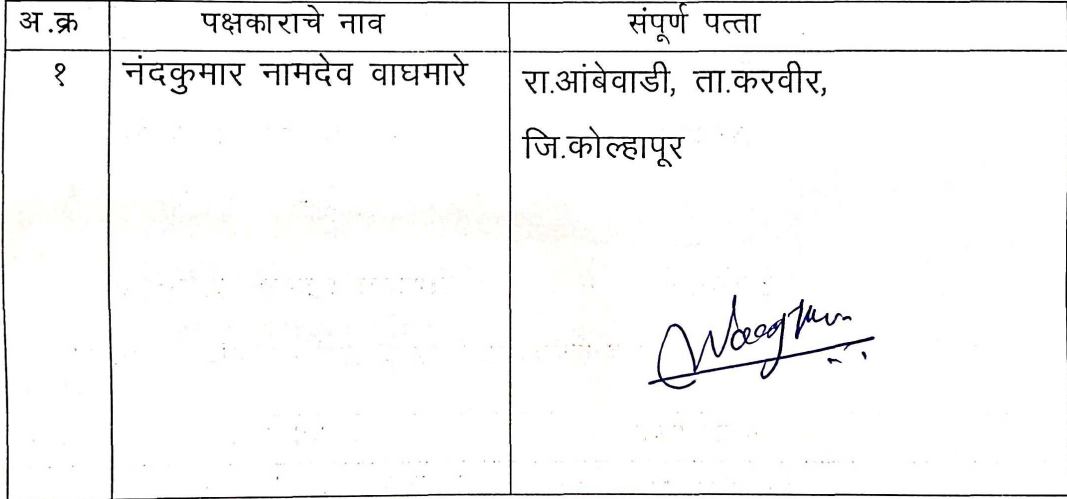 अ.क्र पक्षकाराचे नाव संपूर्ण पत्ता
१ नंदकुमार नामदेव वाघमारे रा.आंबेवाडी, ता.करवीर,
जि.कोल्हापूर